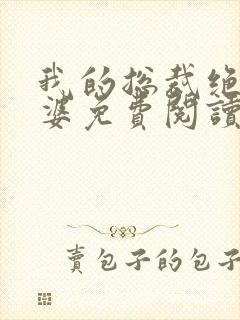 我的总裁绝
婆免费閱讀
賣包子的包子